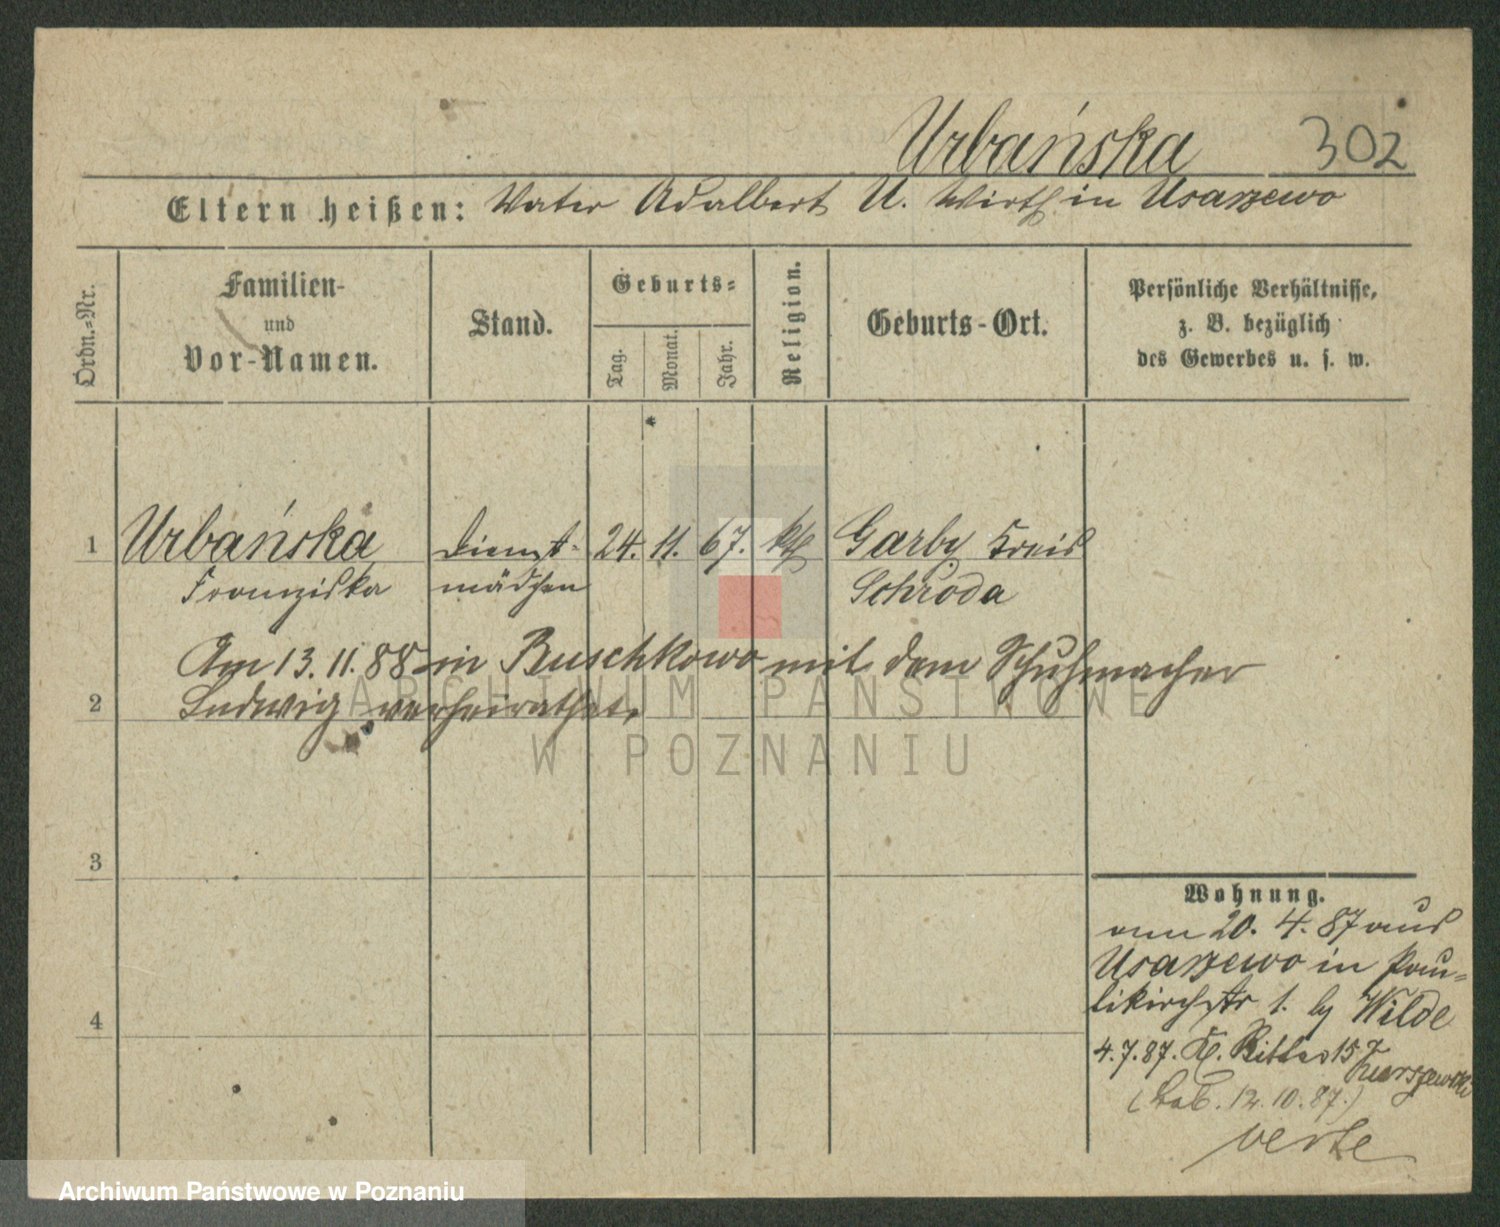 Urbańska 302
Eltern heißen: Vater Adalbert U. Wirth in Usarzewo
Ordn.=Nr.
Familien-
und
Vor-Namen.
Stand.
Geburts=
Tag.
Monat.
Jahr.
Religion.
Geburts-Ort.
Persönliche Verhältnisse,
z. B. bezüglich
des Gewerbes u. s. w.
1 Urbańska Dienst- 24. 11. 67. kth Garby Kreis
Franziska mädchen Schroda
Am 13. 11. 88 in Buschkowo mit dem Schuhmacher
2 Ludwig verheirathet.
ARCHIWUM PAŃSTWOWE
W POZNANIU
3
Wohnung.
vom 20. 4. 87 aus
Usarzewo in Pau-
likirchstr 1. by Wilde
4
4.7.87. Kl. Ritter 15
(12.10.87.)
verte
Archiwum Państwowe w Poznaniu